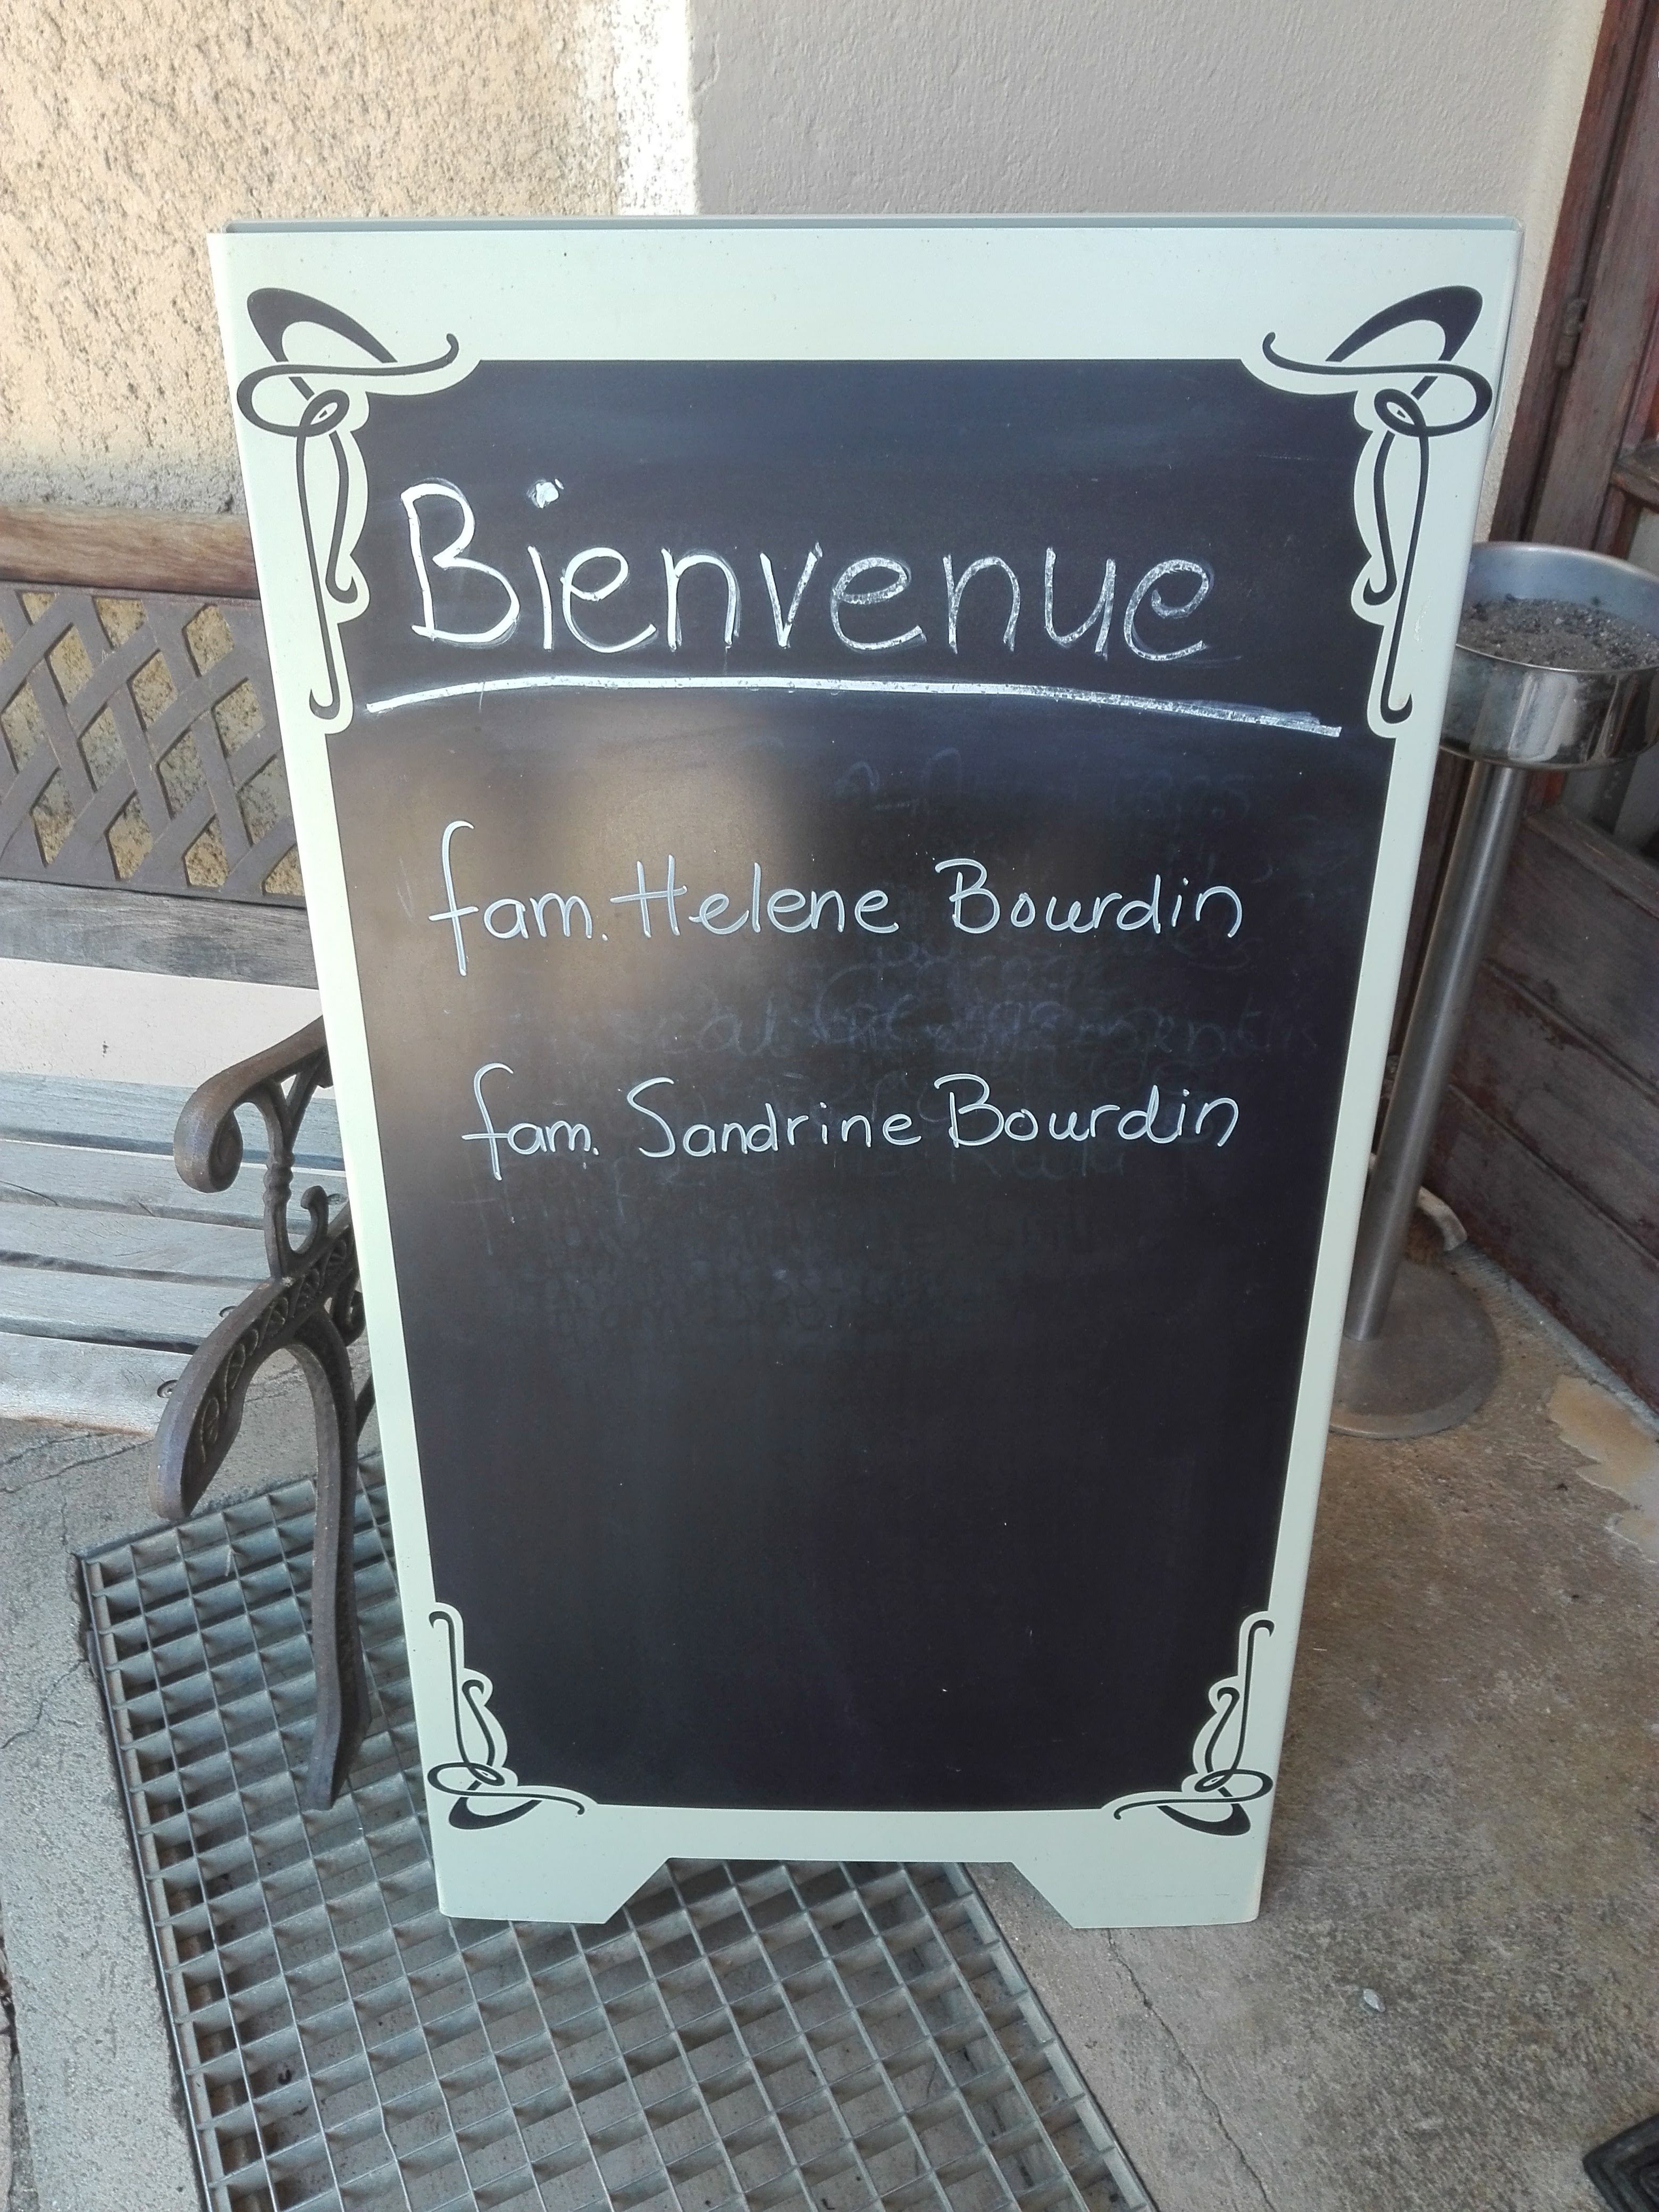 Bienvenue
fam. Helene Bourdin
fam. Sandrine Bourdin